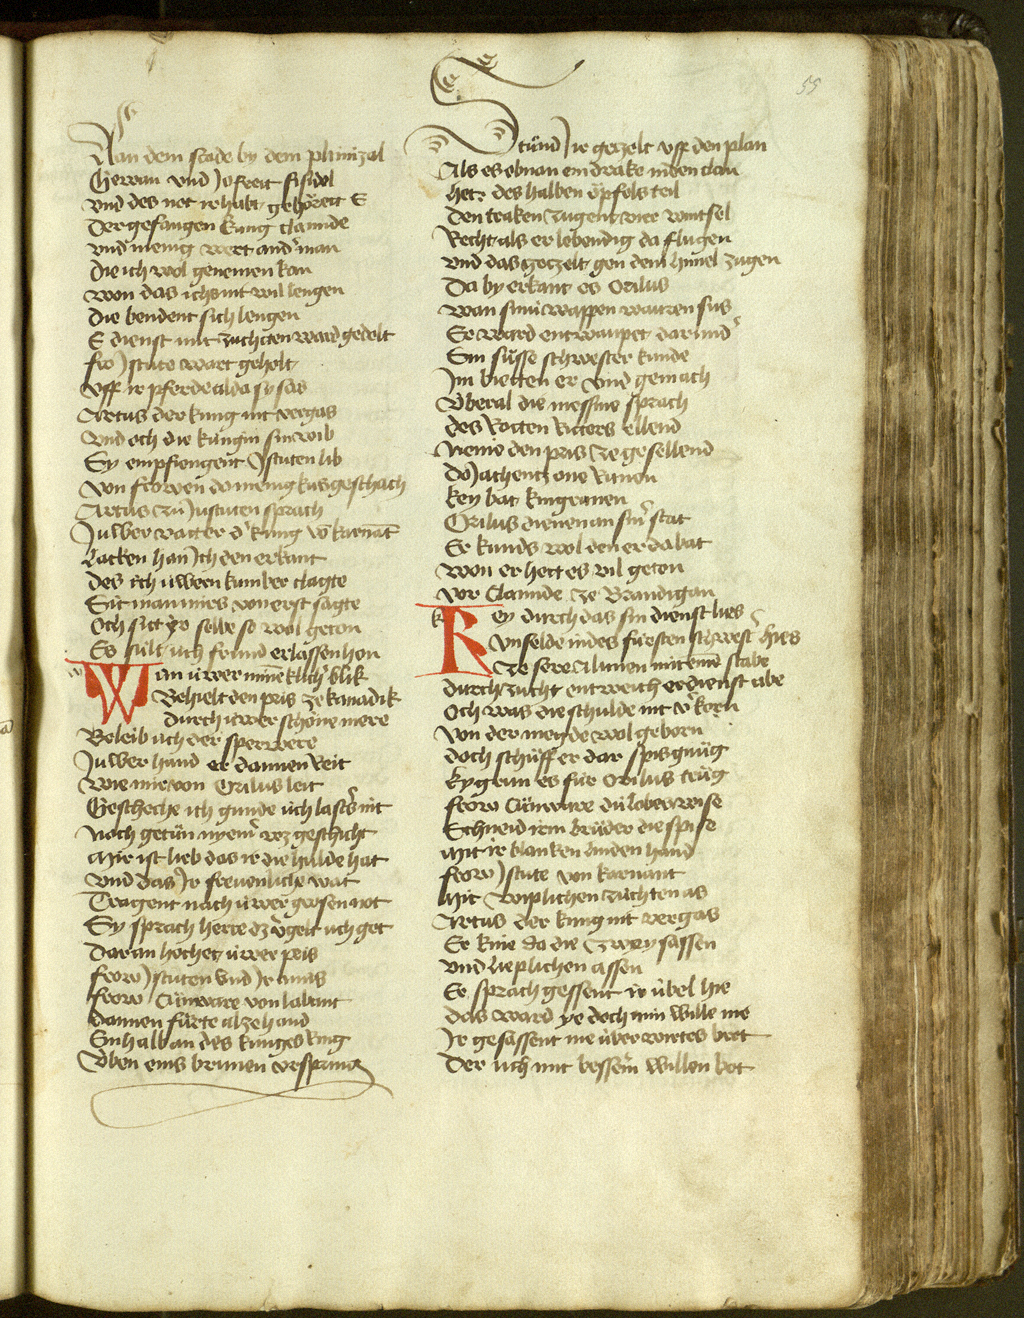 55
Nan dem stade by dem plimizal
Gerwan vnd Jofreit fisidol
vnd des not ir habt gehöret E
Der gefangen kung clamide
vnd menig wert and' man
die ich wol genemen kan
won das ichs nit wil lengen
die bendent sich lengen
E dienst mit zuchten ward gedolt
fro Jstute wart geholt
vff ir pferde alda sy sas
Artus der kung nit vergas
vnd och die kungin sin wib
Sy empfiengent Jstuten lib
von frowen do menig kus geschach
Artus zu Justuten sprach
Juwer vatter d' kung vō karnāt
Lacken han Jch den erkant
des ich uwern kumber clagte
Sit man mirs von erst sagte
Och sitt ir selbe so wol geton
Es sült uch frund erlassen hon
w Wan uwer minēklich' blik
Behielt den pris ze kanadik
durch uwer schöne mere
Beleib uch der sperwere
Juwer hand er dannen Reit
wie mir von Orilus leit
Gescheche ich gunde uch lasters nit
Noch getün nyem' wz geschicht
Mir ist lieb das ir die hulde hat
vnd das Jr frevenliche wat
Tragent nach uwer grosen not
Sy sprach herre dz v'gelt uch got
Dar an hochet uwer pris
frow Jstuten vnd Jr amis
frow Cunware von labant
dannen fürte alzehand
Einhalb an des kunges Ring
vben eins brunen vrspring
Stünd ir gezelt vff den plan
Als es obnan ein drake in den clan
Het des halben öpfels teil
Den traken zugent vier wintseil
Recht als er lebendig da flugen
vnd das gezelt gen dem himel zugen
Da by erkant es Orilus
wan sinü wappen waren sus
Er ward entwaupet dar und'
Sin süsse schwester kunde
Jm bietten er vnd gemach
vberal die messnie sprach
des Rotten Ritters ellend
Neme den pris ze gesellend
Do Jachentz one Runen
key bat kingrunen
Orilus dienen an sin' stat
Er kunds wol den er da bat
won er hett es vil geton
vor Clamide ze Brandigan
k Key durch das sin dienst lies
vnselde in des fürsten schwest' hies
Ze sere Alunen mit eine stabe
durch zucht entweich er dienst abe
Och was die schulde nit v'korn
von der megde wol geborn
doch schüff er dar spis gnüg
kygrun es für Orilus trüg
frow Cunware dü lobes wise
Schneid irm brüder die spise
Mit ir blanken linden hand
frow Jstute von karnant
Mit wiplichen züchten as
Artus der kung nit vergas
Er kme da die zwey sassen
vnd lieplichen assen
Er sprach gessent ir übel hie
das ward ye doch min wille nie
Jr gesassent nie über wirtes brot
Der uch mit besserm willen bot